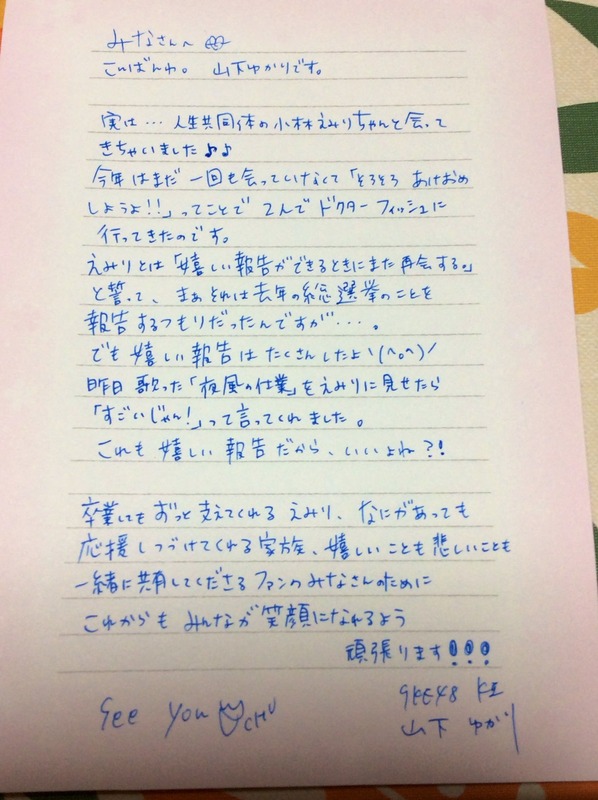 みなさんへ
こんばんわ。 山下ゆかりです。
実は… 人生共同体の小林えみりちゃんと会って
きちゃいました♪♪
今年はまだ一回も会っていなくて「そろそろ あけおめ
しようよ!!」ってことで 2人で ドクターフィッシュに
行ってきたのです。
えみりとは「嬉しい報告ができるときにまた再会する。」
と誓って、まぁ それは去年の総選挙のことを
報告するつもりだったんですが…。
でも 嬉しい報告は たくさんしたよ\(^o^)/
昨日 歌った「夜風の仕業」をえみりに見せたら
「すごいじゃん!」って言ってくれました。
これも 嬉しい 報告だから、いいよね?!
卒業してもずっと支えてくれる えみり、なにがあっても
応援しつづけてくれる家族、嬉しいことも悲しいことも
一緒に共有してくださる ファンのみなさんのために
これからも みんなが 笑顔になれるよう
頑張ります!!!
See you CHU
SKE48 KII
山下 ゆかり